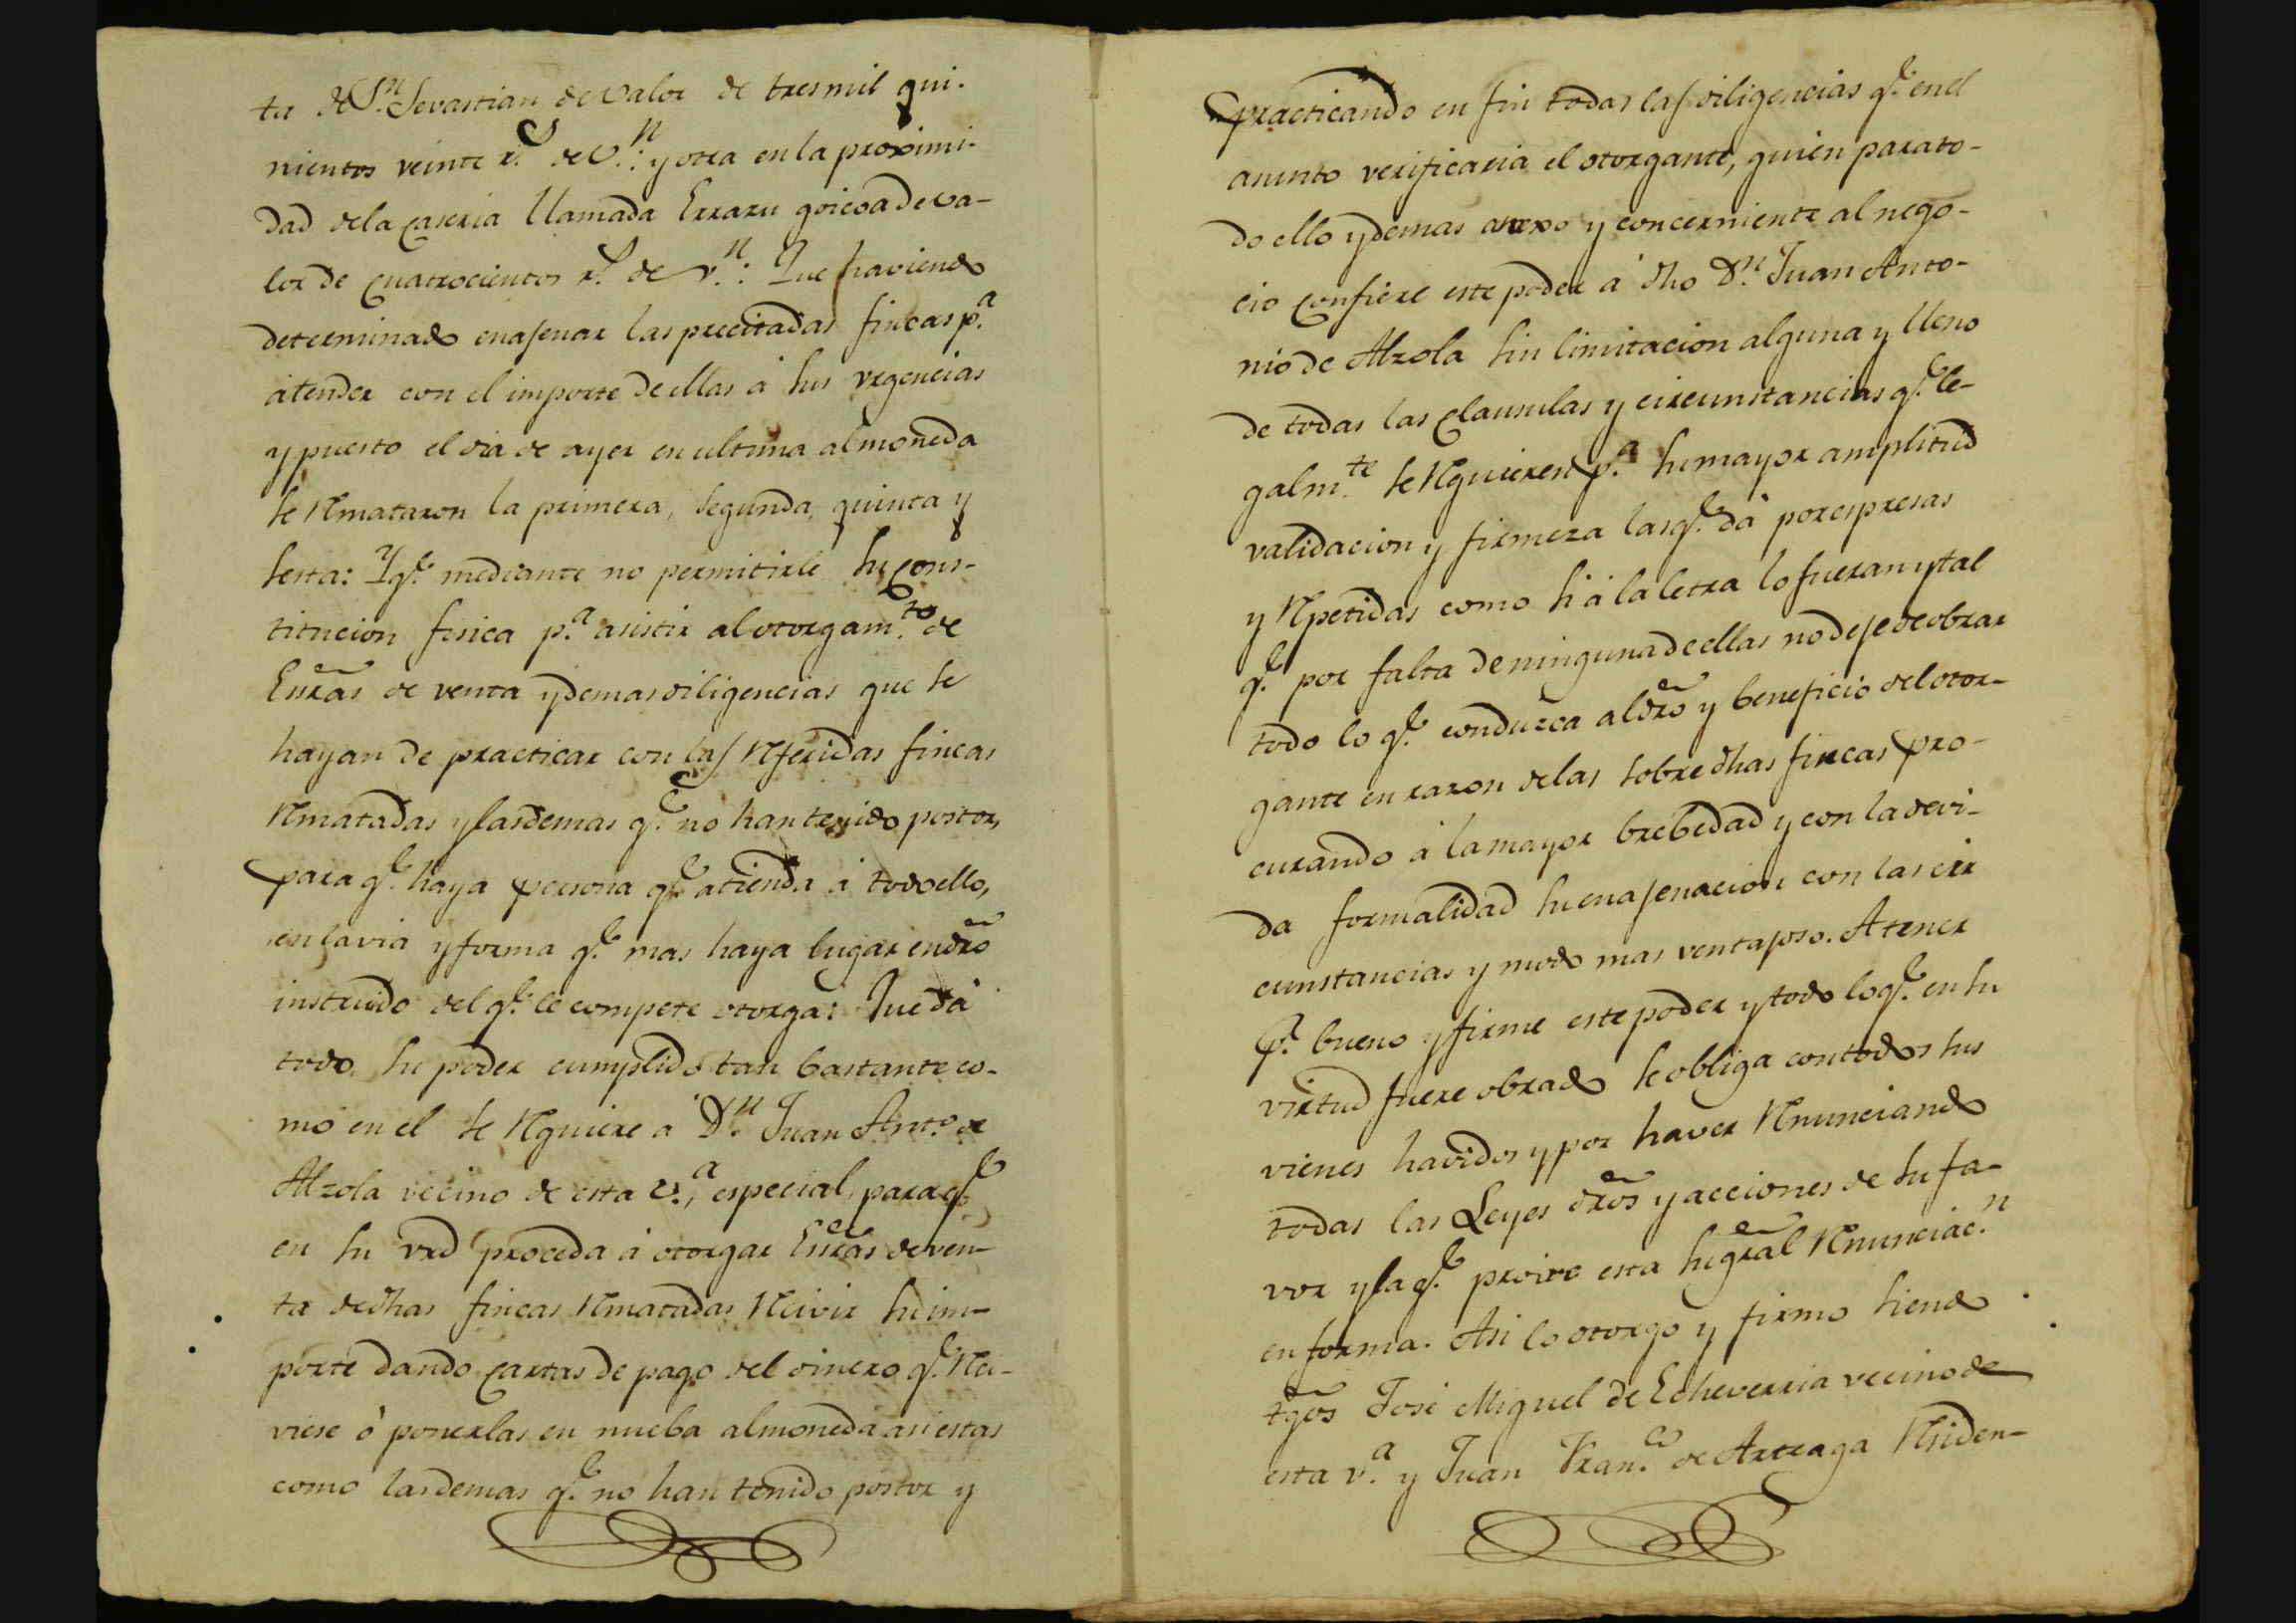 ta de S.n Sevastian de valor de tres mil qui-
nientos veinte r.s de v.n: y otra en la proximi-
dad de la Caseria llamada Errazu goicoa de va-
lor de Cuatrocientos r.s de v.n: Que haviendo
determinado enajenar las precitadas fincas p.a
atender con el importe de ellas á sus vrgencias
y puesto el dia de ayer en ultima almoneda
se Rmataron la primera, segunda, quinta y
sesta: Y q.e mediante no permitirle su cons-
titucion fisica p.a asistir al otorgam.to de
Esras de venta y demas diligencias que se
hayan de practicar con las Rferidas fincas
Rmatadas y las demas q.e no han tenido postor,
para q.e haya persona q.e atienda á todo ello,
en la via y forma q.e mas haya lugar en dro
instruido del q.e le compete otorga: Que dá
todo su poder cumplido tan bastante co-
mo en el se Rquiere á D.n Juan Ant.o de
Alzola vecino de esta v.a, especial, para q.e
en su vrd proceda á otorgar Esras de ven-
ta de dhas fincas Rmatadas Rcivir su im-
porte dando Cartas de pago del dinero q.e Rci-
viese ó ponerlas en nueba almoneda asi estas
como las demas q.e no han tenido postor y
practicando en fin todas las diligencias q.e en el
asunto verificaria el otorgante, quien para to-
do ello y demas anexo y concerniente al nego-
cio Confiere este poder á dho D.n Juan Anto-
nio de Alzola sin limitacion alguna y lleno
de todas las Clausulas y circunstancias q.e le-
galm.te se Rquieren p.a su mayor amplitud
validacion y firmeza las q.e dá por espresas
y Rpetidas como si á la letra lo fueran y tal
q.e por falta de ninguna de ellas no deje de obrar
todo lo q.e conduzca al dro y beneficio del otor-
gante en razon de las sobre dhas fincas pro-
curando á la mayor brebedad y con la devi-
da formalidad su enajenacion con las cir
cunstancias y modo mas ventajoso. A tener
p.r bueno y firme este poder y todo lo q.e en su
virtud fuere obrado se obliga con todos sus
vienes havidos y por haver Rnunciando
todas las Leyes dros y acciones de su fa-
vor y la q.e proive esta su gral Rnunciac.n
en forma. Asi lo otorgo y firmo siendo
tgos José Miguel de Echeverria vecino de
esta v.a y Juan Fran.co de Arteaga Rsiden-